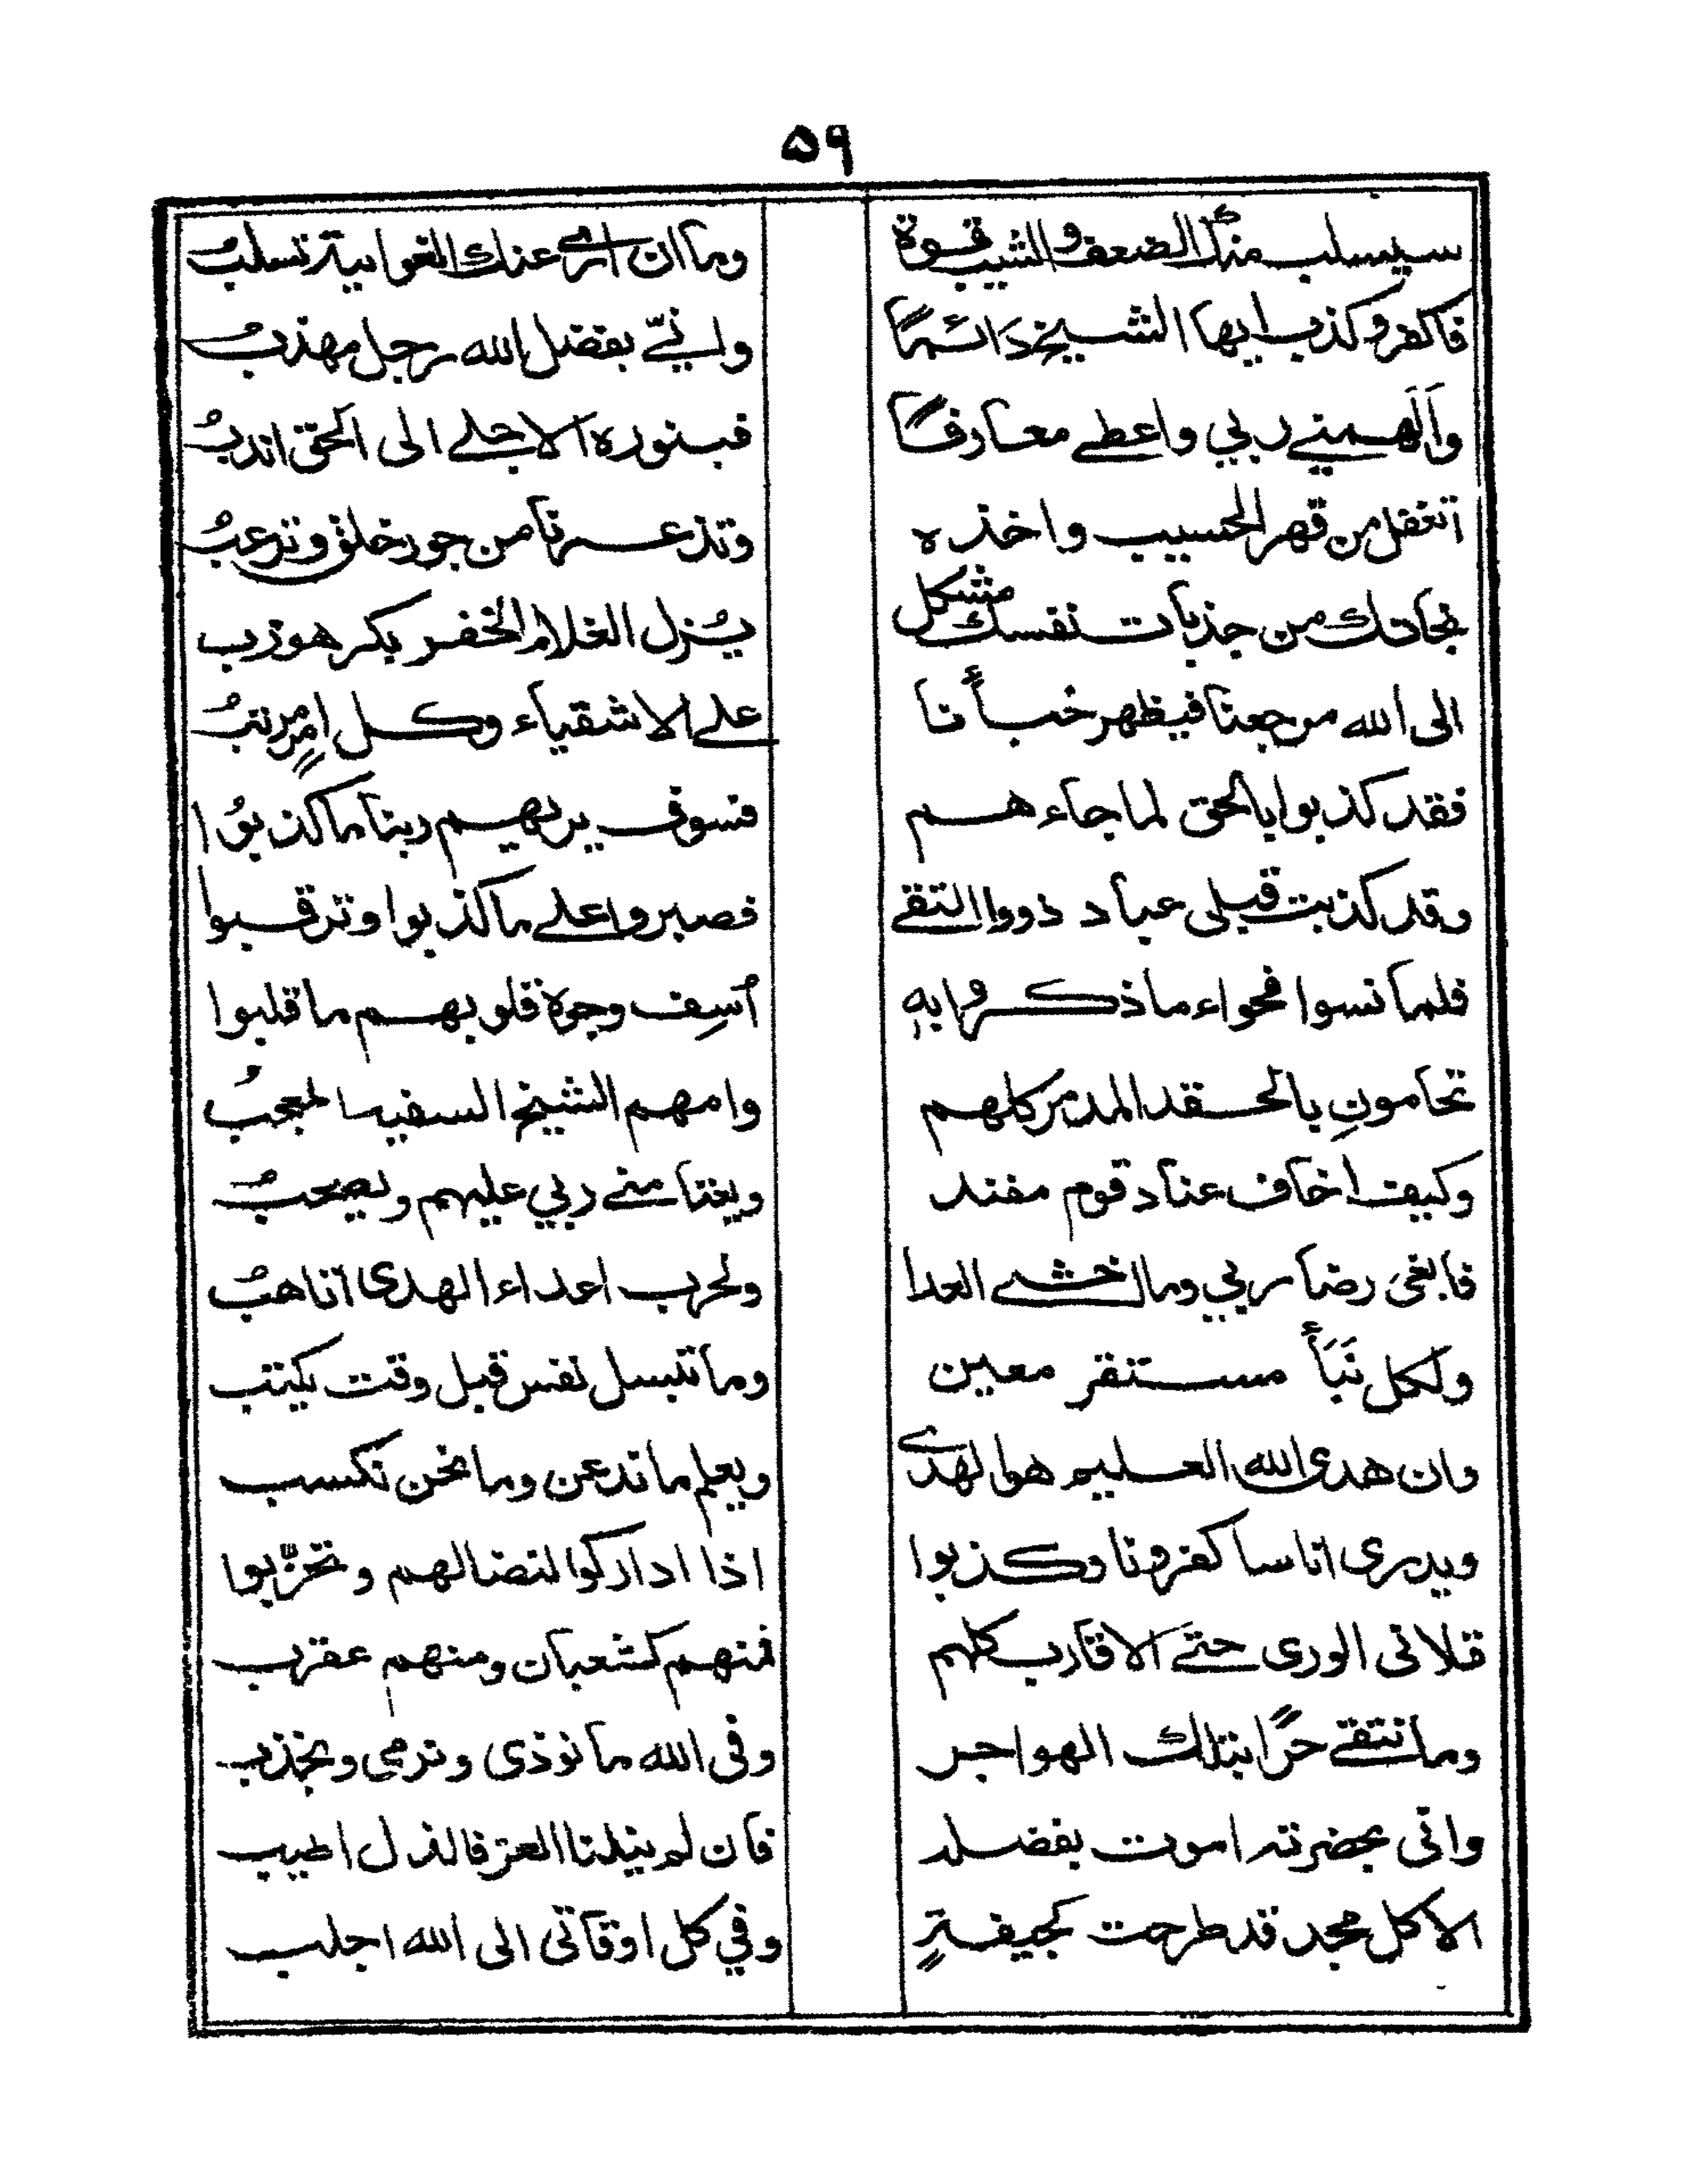 ۵۹
سيسلب منك الضعف والشيب قوة وما ان ارى عنك الغواية تسلبُ
فاكفر وكذب ايها الشيخ دَائمًا وانيّ بفضل الله رجل مهذبُ
وَاَلْهمنے ربي واعطے معارفًا فبنوره الاجلے الى الحق اندبُ
اتغفل من قهر الحسيب واخذه وتذعرنا من جور خلق وترعبُ
نجاتك من جذبات نفسك مشكل يُزل الغلام الخفر بكر هوزب
الى الله مرجعنا فيظهر خبأنا علے الاشقياء وكل امرٍ مرتبُ
فقد كذبوا بالحق لما جاءهم فسوف يريهم ربنا ما كذبوُا
وقد كذبت قبلى عباد ذووا التقے فصبروا علے ما كذبوا وترقبوا
فلما نسوا فحواء ما ذكروا بهٖ اُسِف وجوة قلوبهم ما قلبوا
تحامونِ بالحقد المدمر كلهم وامهم الشيخ السفيه المعجبُ
وكيف اخاف عناد قوم مفند ويغتامنے ربي عليهم ويصحبُ
فابغى رضا ربي وما اخشے العدا ولحرب اعداء الهدى اتاهبُ
ولكل نَبَأٍ مستقر معين وما تبسل نفس قبل وقت يكتب
وان هدى الله العليم هو الهدى ويعلم ما ندعن وما نحن نكسب
ويدرى اناسا كفرونا وكذبوا اذا اداركوا لنضالهم وتحزّبوا
قلانى الورى حتے الاقارب كلهم فمنهم كثعبان ومنهم عقرب
وما نتقے حرًا بتلك الهواجر وفى الله ما نوذى ونرمى ونجذب
وانى بحضرته اموت بفضله فان لم ينلنا العز فالذل اطيب
الا كل مجد قد طرحت كجيفةٍ وفي كل اوقاتى الى الله اجلب